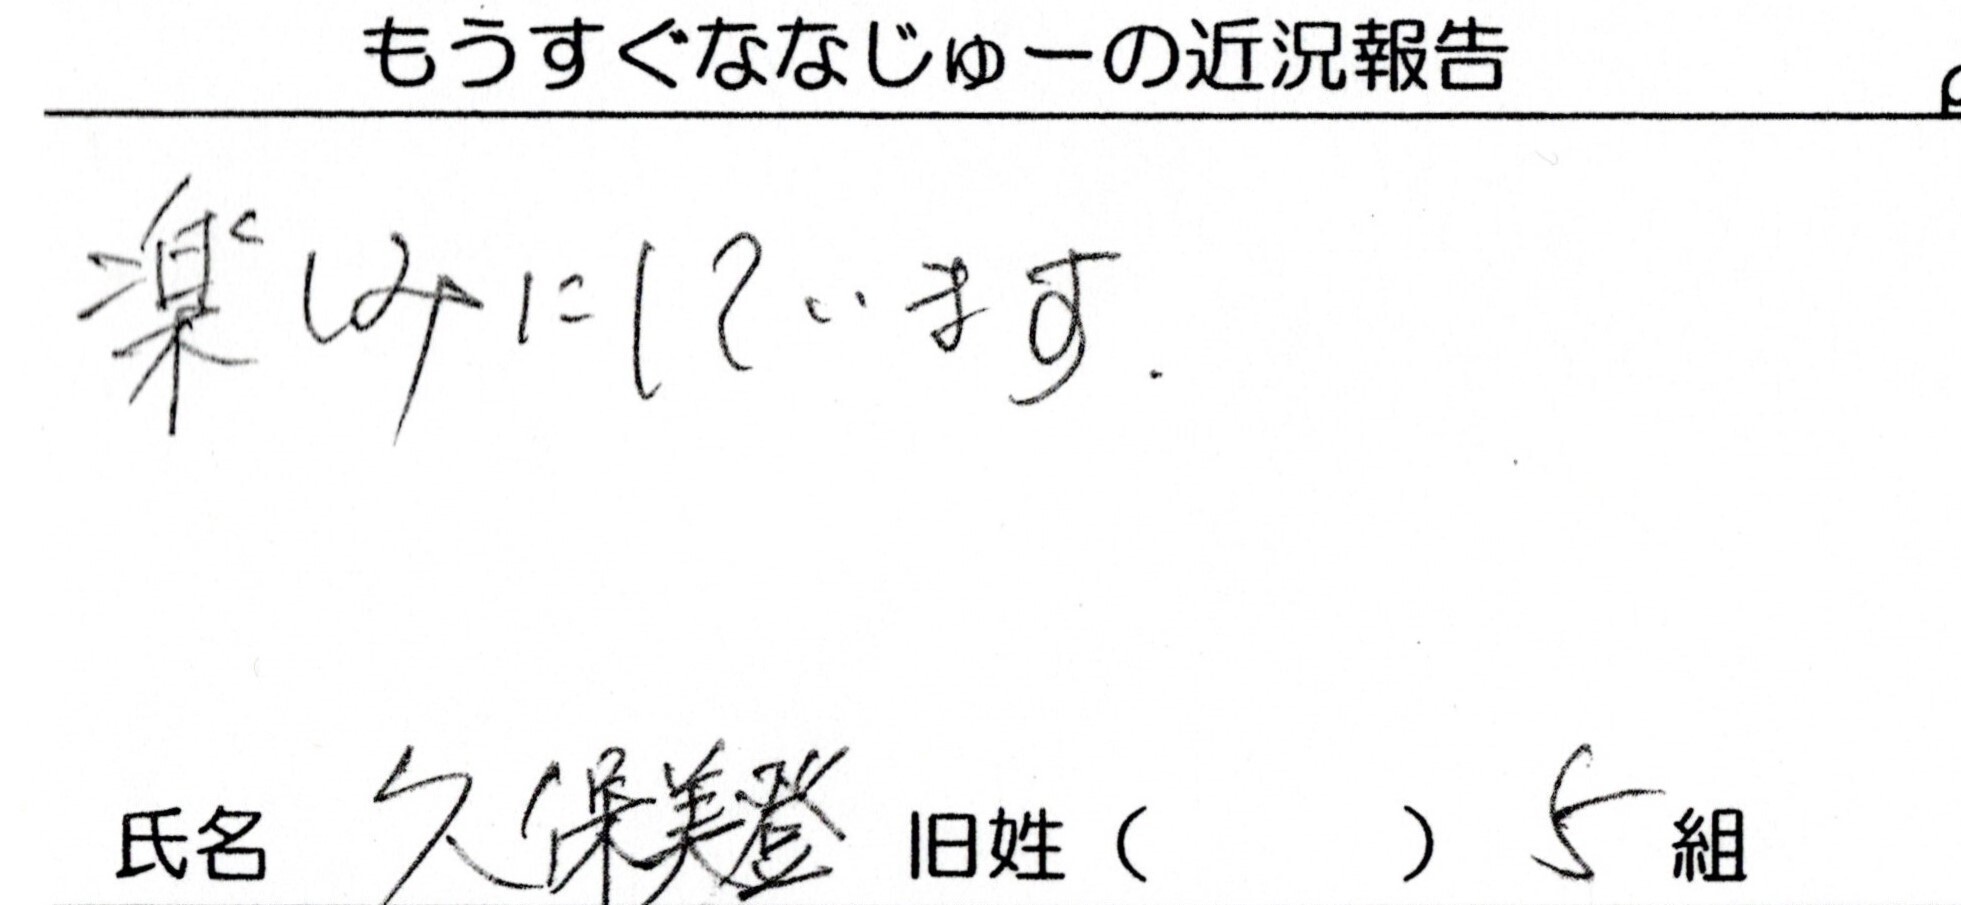 もうすぐななじゅーの近況報告
楽しみにしています.
氏名 久保美登 旧姓( ) 5組